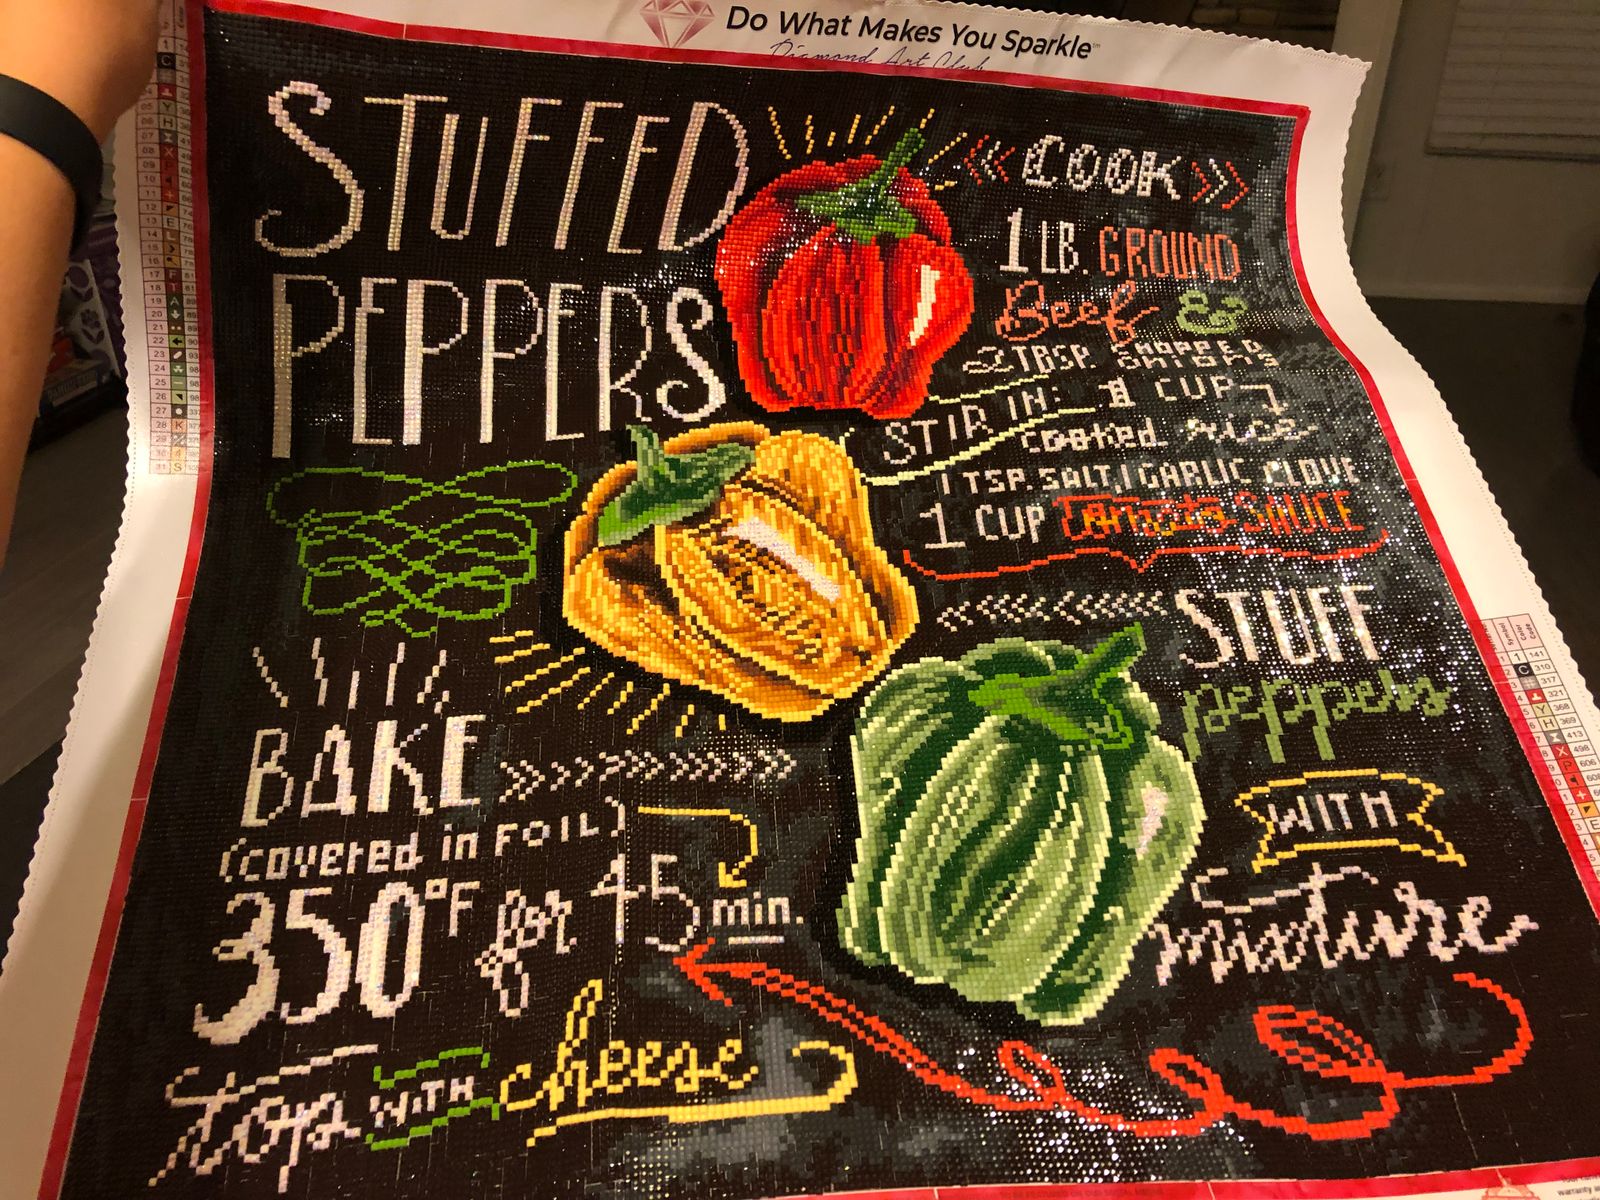 Do What Makes You Sparkle™
Diamond Art Club
STUFFED
PEPPERS
« COOK »
1 LB. GROUND
Beef &
2 TBSP. CHOPPED ONIONS
STIR IN: 1 CUP
cooked rice
1 TSP. SALT, 1 GARLIC CLOVE
1 CUP Tomato SAUCE
<<<<<<<<<<
STUFF
peppers
WITH
mixture
BAKE >>>>>>>>>>
(covered in FOIL)
350°F for 45 min.
top WITH cheese
Symbol Color Code
1 141
C 310
317
321
Y 368
H 369
413
X 498
P 606
608